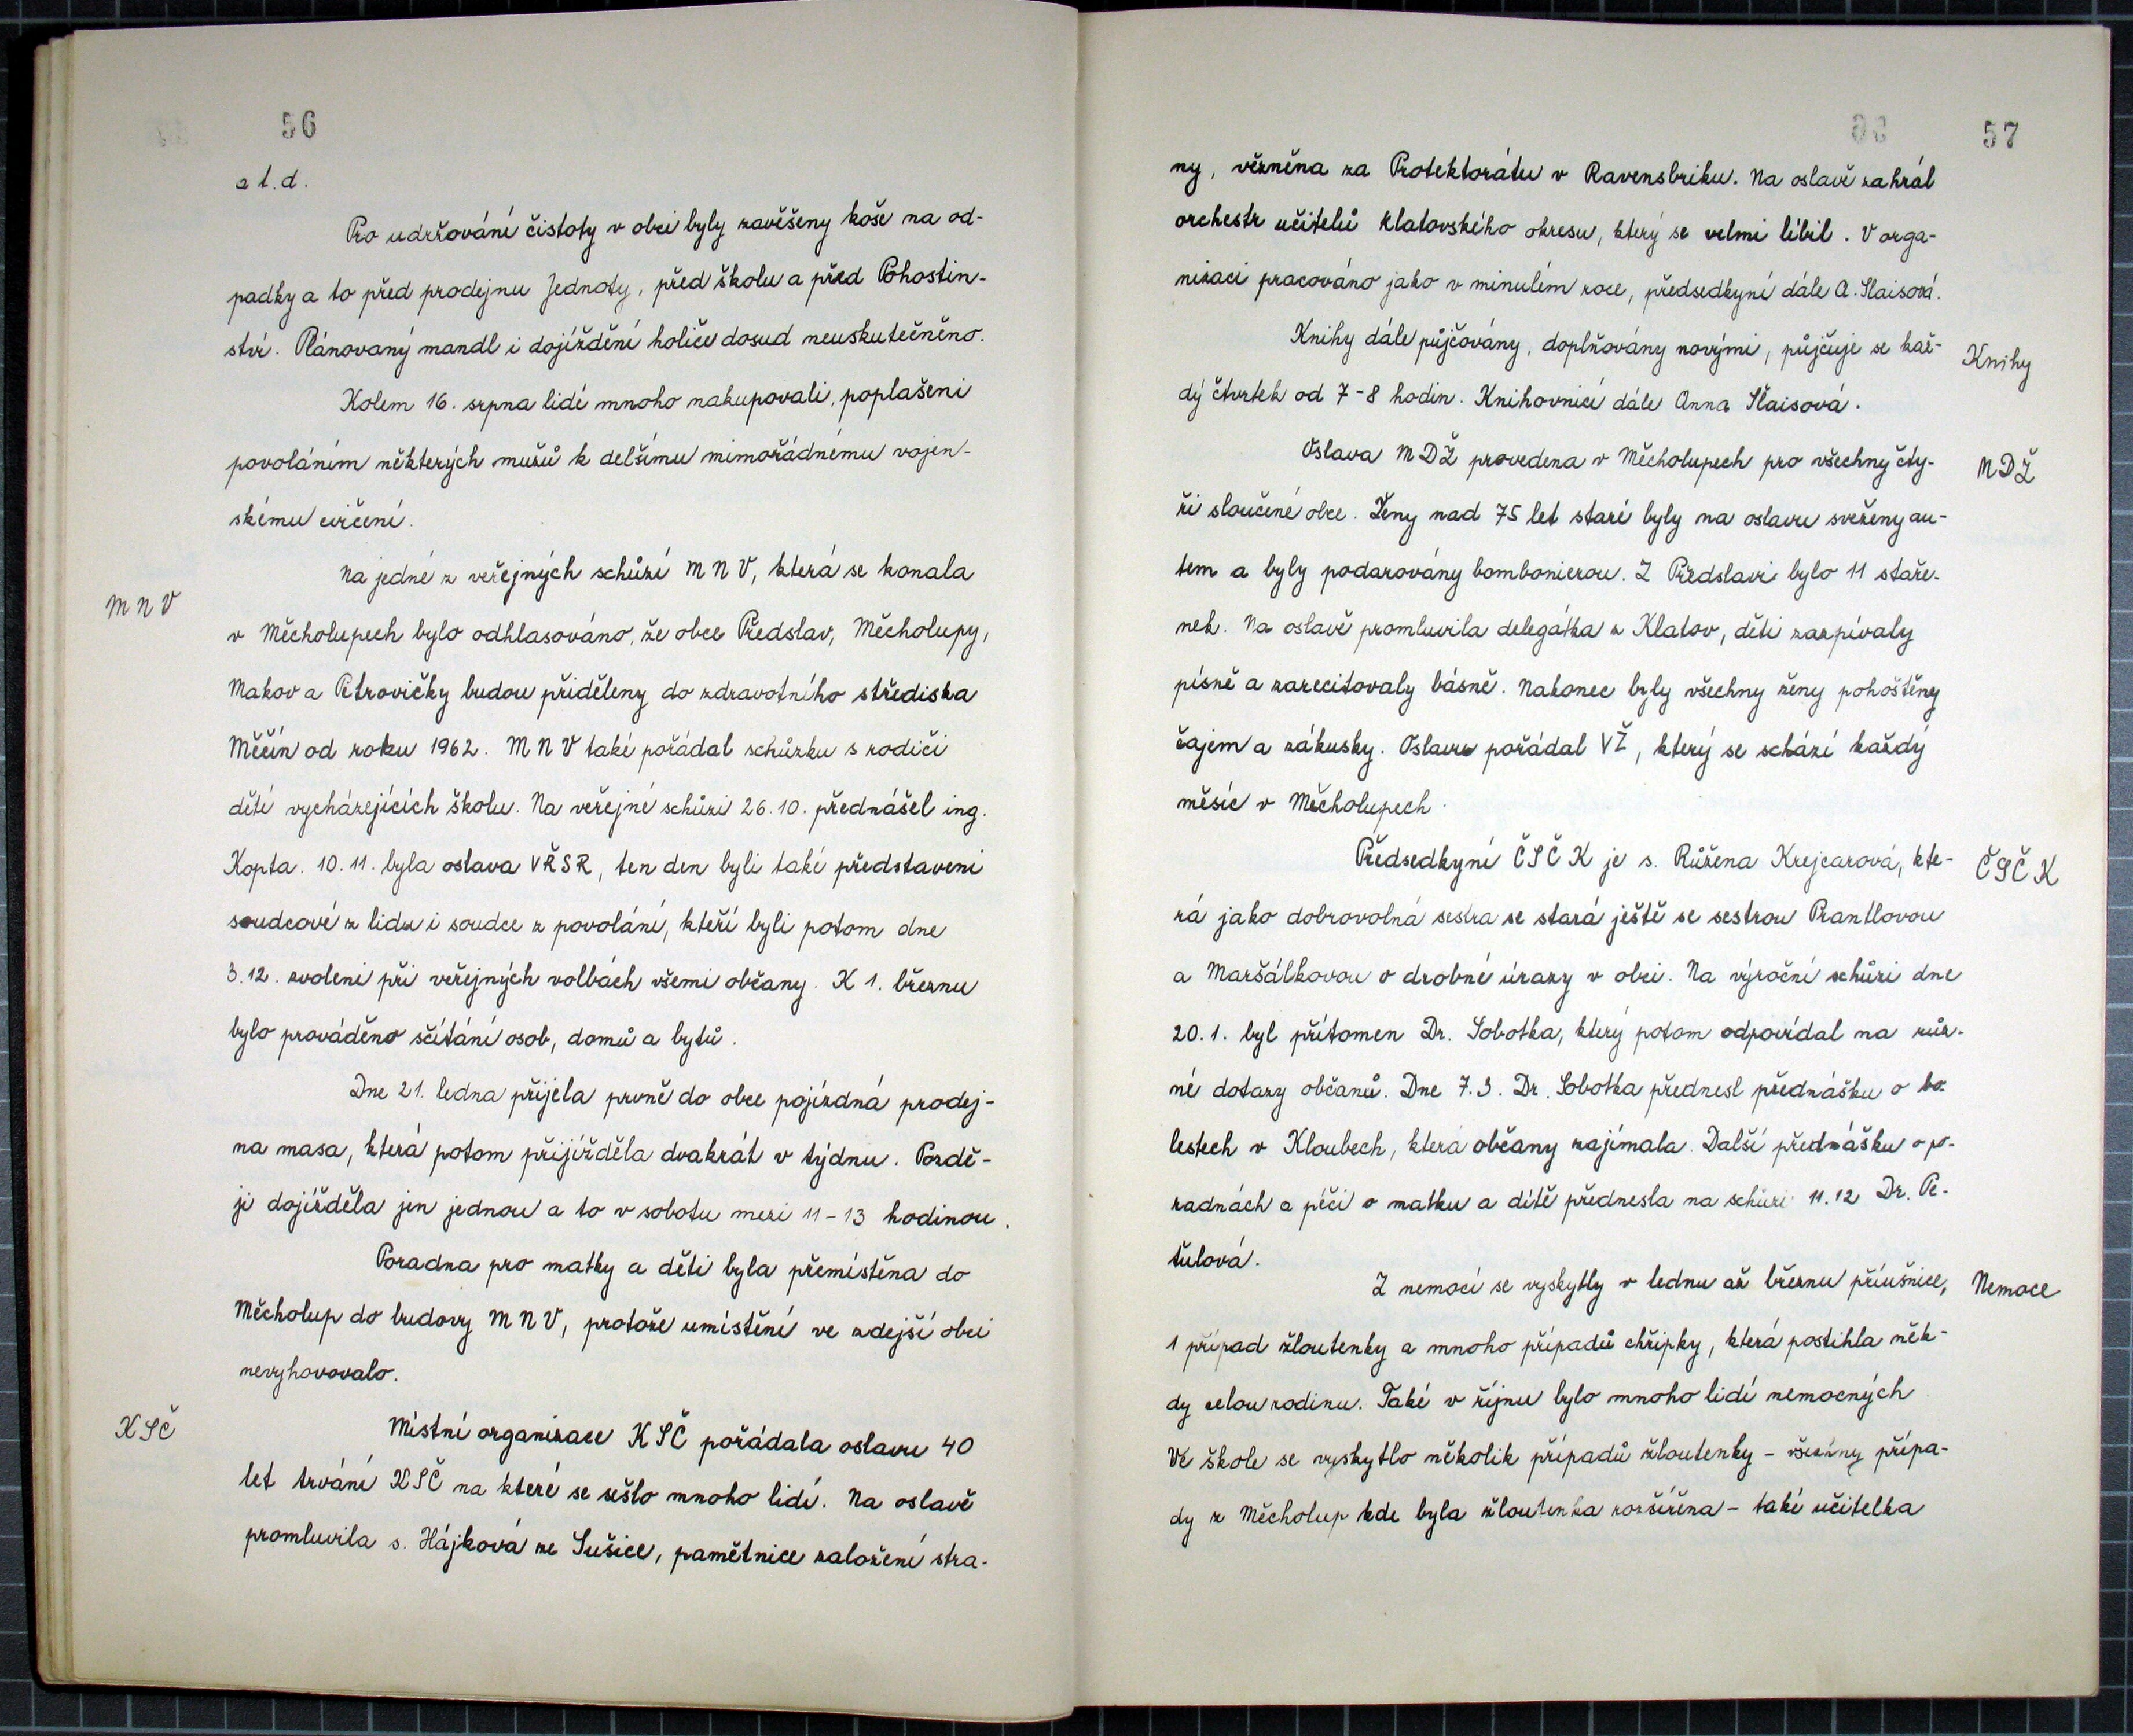 56
a t.d.
Pro udržování čistoty v obci byly zavěšeny koše na od-
padky a to před prodejnu Jednoty, před školu a před Pohostin-
ství. Plánovaný mandl i dojíždění holiče dosud neuskutečněno.
Kolem 16. srpna lidé mnoho nakupovali, poplašeni
povoláním některých mužů k delšímu mimořádnému vojen-
skému cvičení.
MNV
Na jedné z veřejných schůzí MNV, která se konala
v Měcholupech bylo odhlasováno, že obce Předslav, Měcholupy,
Makov a Petrovičky budou přiděleny do zdravotního střediska
Měčín od roku 1962. MNV také pořádal schůzku s rodiči
dětí vycházejících školu. Na veřejné schůzi 26.10. přednášel ing.
Kopta. 10.11. byla oslava VŘSR, ten den byli také představeni
soudcové z lidu i soudce z povolání, kteří byli potom dne
3.12. zvoleni při veřejných volbách všemi občany. K 1. březnu
bylo prováděno sčítání osob, domů a bytů.
Dne 21. ledna přijela prvně do obce pojízdná prodej-
na masa, která potom přijížděla dvakrát v týdnu. Pozdě-
ji dojížděla jen jednou a to v sobotu mezi 11-13 hodinou.
Poradna pro matky a děti byla přemístěna do
Měcholup do budovy MNV, protože umístění ve zdejší obci
nevyhovovalo.
KSČ
Místní organizace KSČ pořádala oslavu 40
let trvání KSČ na které se sešlo mnoho lidí. Na oslavě
promluvila s. Hájková ze Sušice, pamětnice založení stra-
57
ny, vězněna za Protektorátu v Ravensbriku. Na oslavě zahrál
orchestr učitelů klatovského okresu, který se velmi líbil. V orga-
nizaci pracováno jako v minulém roce, předsedkyní dále A. Slaisová.
Knihy
Knihy dále půjčovány, doplňovány novými, půjčuje se kaž-
dý čtvrtek od 7-8 hodin. Knihovnicí dále Anna Slaisová.
MDŽ
Oslava MDŽ provedena v Měcholupech pro všechny čty-
ři sloučené obce. Ženy nad 75 let staré byly na oslavu svezeny au-
tem a byly podarovány bombonierou. Z Předslavi bylo 11 staře-
nek. Na oslavě promluvila delegátka z Klatov, děti zazpívaly
písně a zarecitovaly básně. Nakonec byly všechny ženy pohoštěny
čajem a zákusky. Oslavu pořádal VŽ, který se schází každý
měsíc v Měcholupech.
ČSČK
Předsedkyní ČSČK je s. Růžena Krejcarová, kte-
rá jako dobrovolná sestra se stará ještě se sestrou Prantlovou
a Maršálkovou o drobné úrazy v obci. Na výroční schůzi dne
20.1. byl přítomen Dr. Sobotka, který potom odpovídal na růz-
né dotazy občanů. Dne 7.3. Dr. Sobotka přednesl přednášku o bo-
lestech v Kloubech, která občany zajímala. Další přednášku o po-
radnách a péči o matku a dítě přednesla na schůzi 11.12 Dr. Pe-
tulová.
Nemoce
Z nemocí se vyskytly v lednu až březnu příušnice,
1 případ žloutenky a mnoho případů chřipky, která postihla něk-
dy celou rodinu. Také v říjnu bylo mnoho lidí nemocných
Ve škole se vyskytlo několik případů žloutenky - všechny přípa-
dy z Měcholup kde byla žloutenka rozšířena - také učitelka